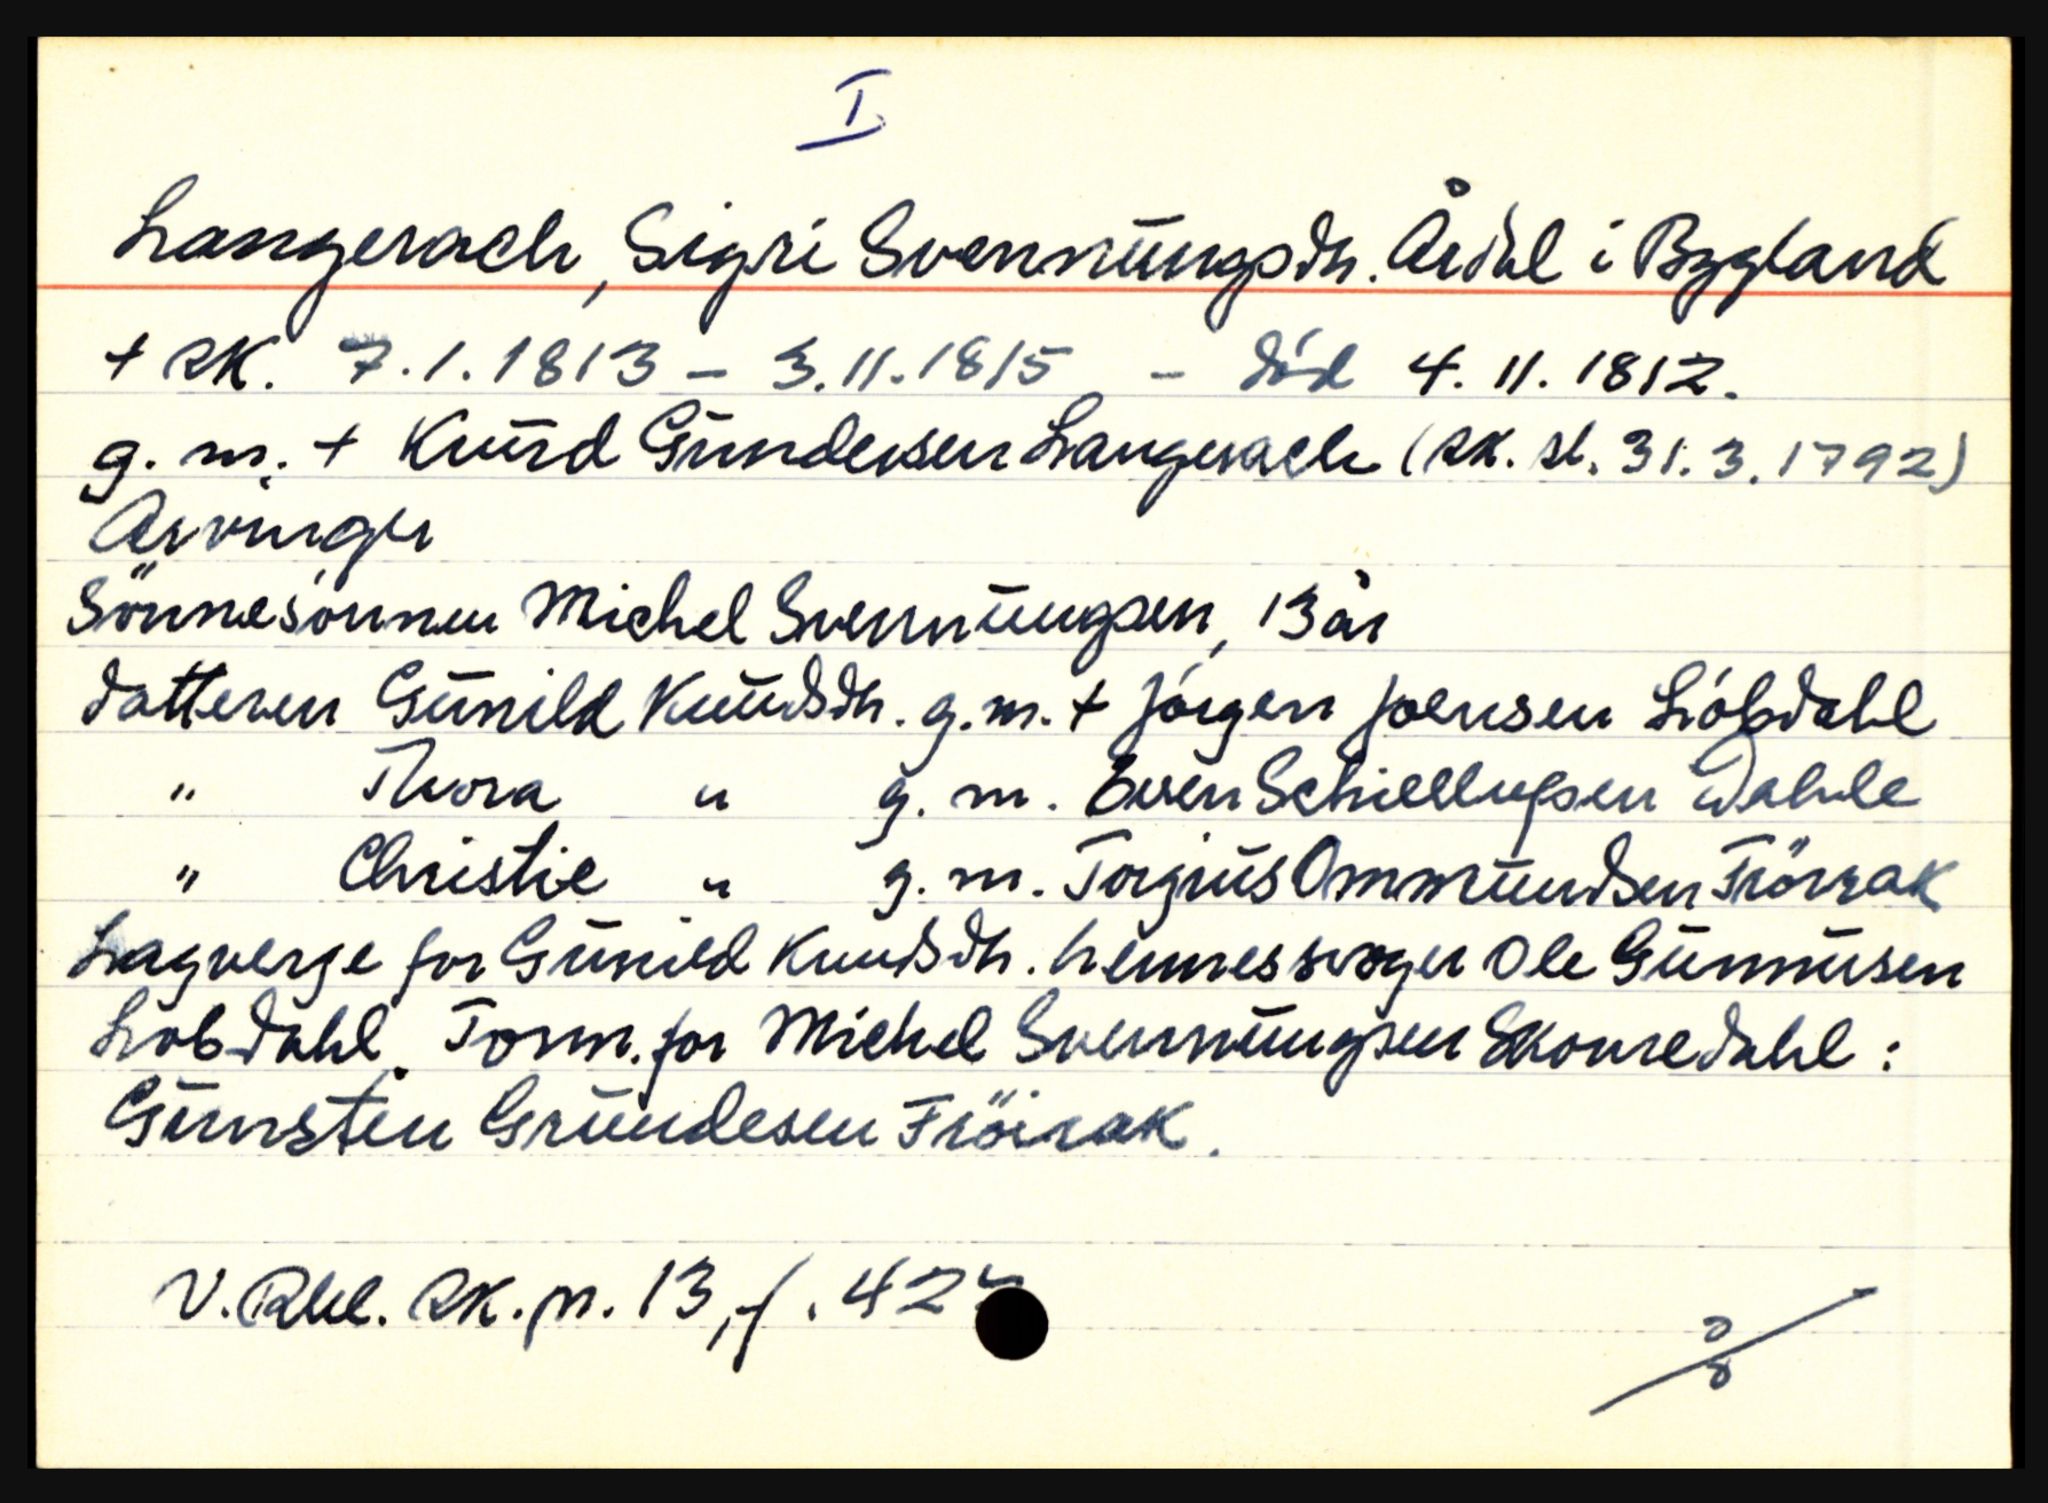 I
Langerach, Sigri Svennungsdtr. Årdal i Bygland
+ SK. 7.1.1813 - 3.11.1815 - död 4.11.1812.
g.m. + Knud Gundersen Langerach (SK. sl. 31.3.1792)
Arvinger
Sönnesönnen Michel Svennungsen, 13 år
datteren Gunild Knudsdtr. g.m. + Jörgen Joensen Löbdahl
" Thora " g.m. Even Schiellufsen Dahle
" Christie " g.m. Torgius Ommundsen Frörak
Lagverge for Gunild Knudsdtr. hennes svoger Ole Gunnusen
Löbdahl. Form. for Michel Svennungsen Skomedahl:
Gunsten Grundesen Fröirak.
V. Rbl. SK. pr. 13, f. 42